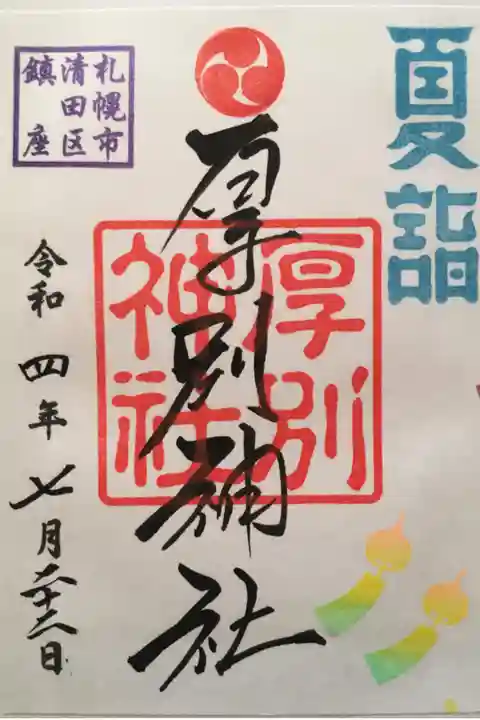 夏詣
札幌市
清田区
鎮座
厚別神社
厚別
神社
令和四年七月二十二日